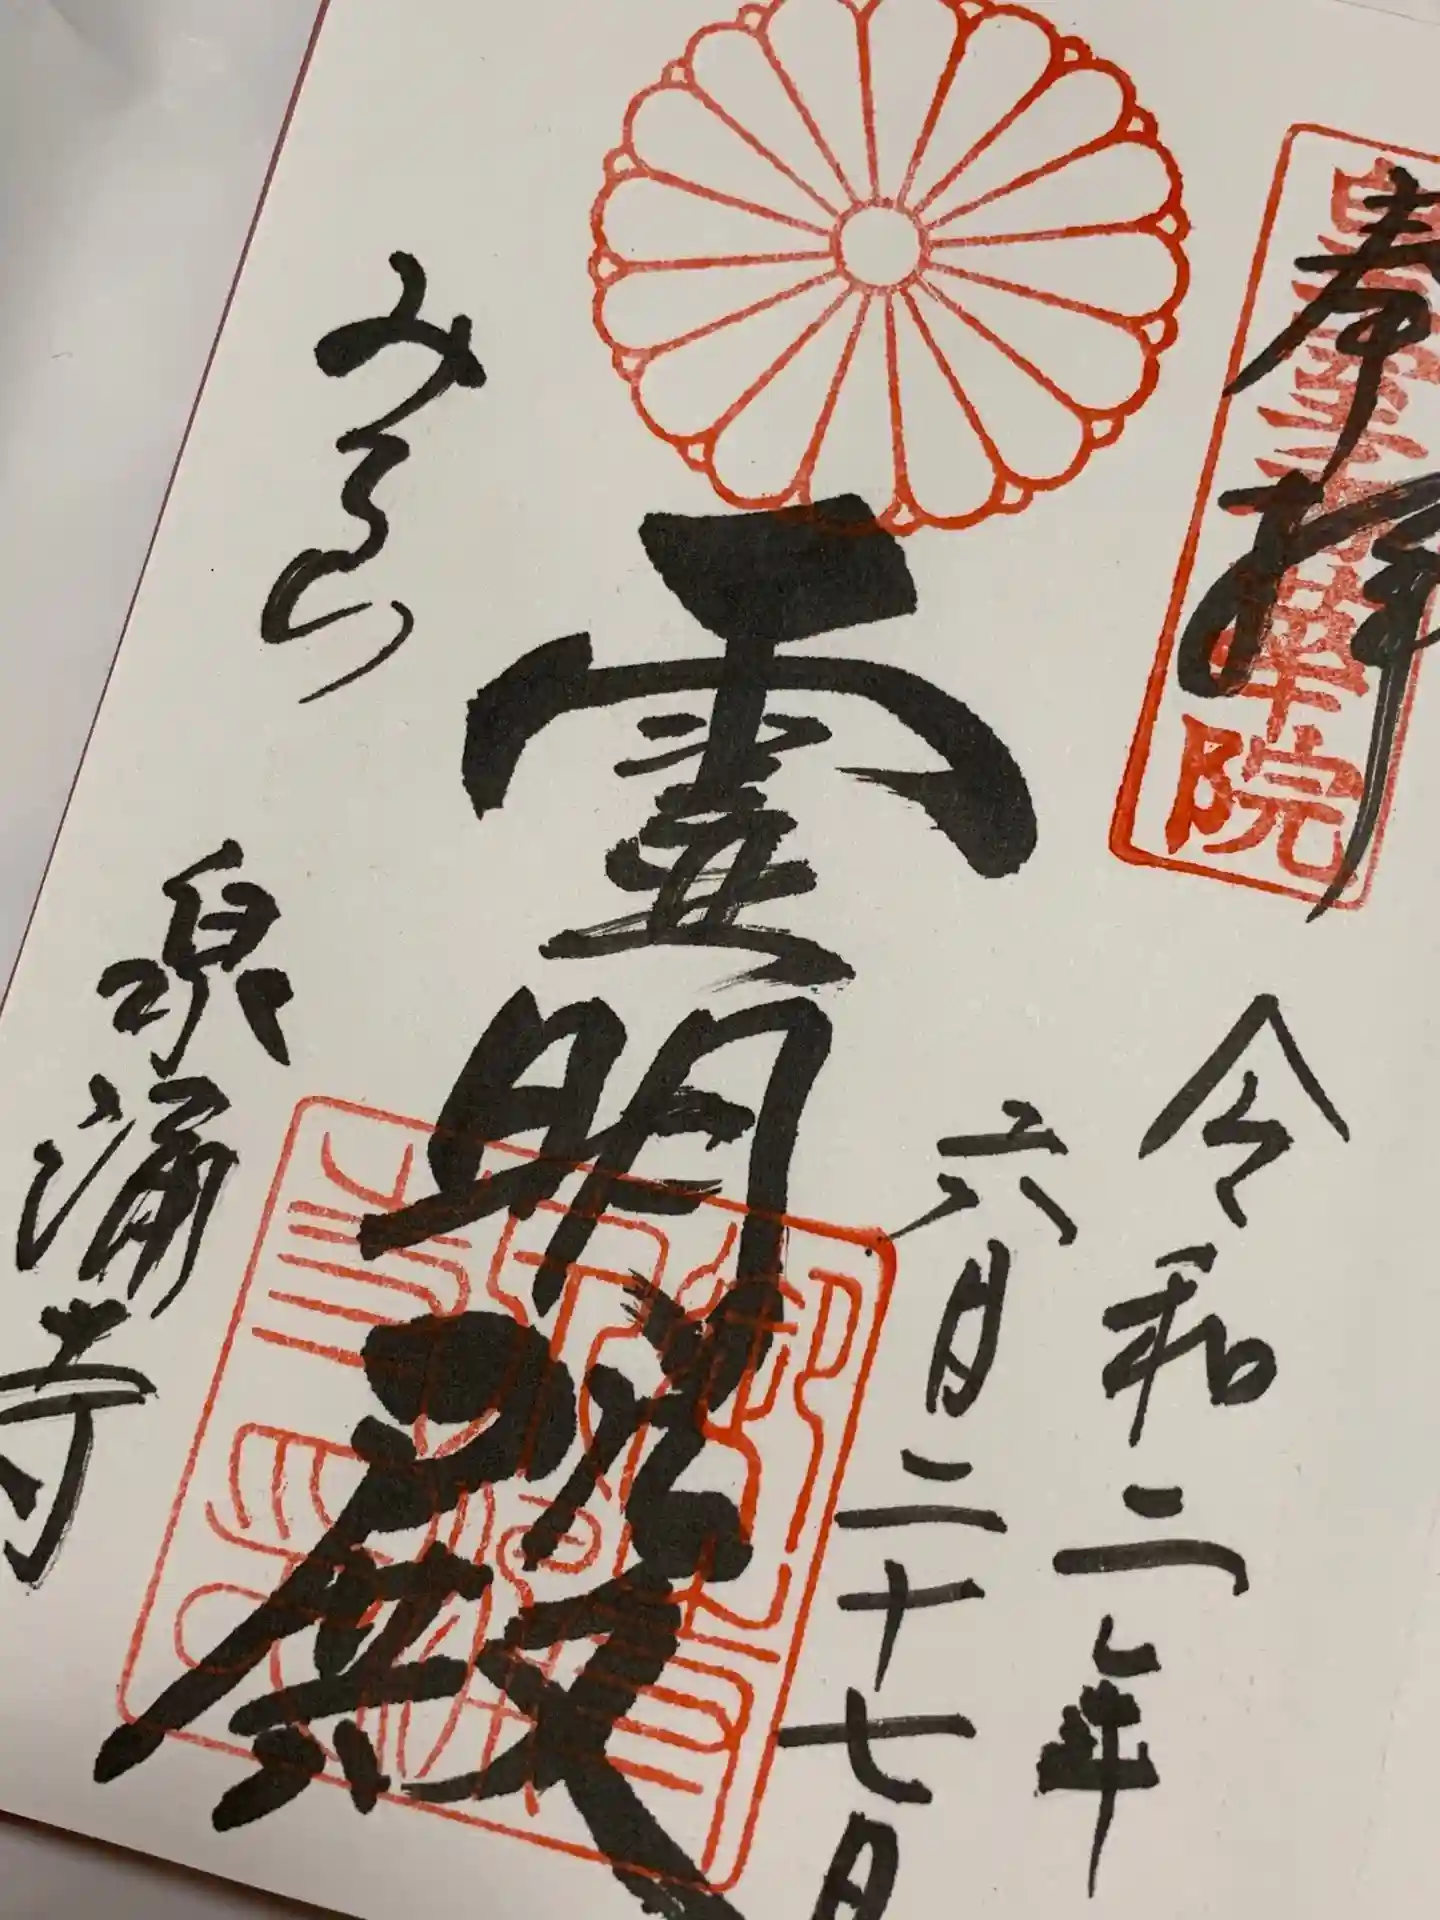 奉拝
皇室香華院
令和二年
六月二十七日
霊明殿
みてら
泉涌寺